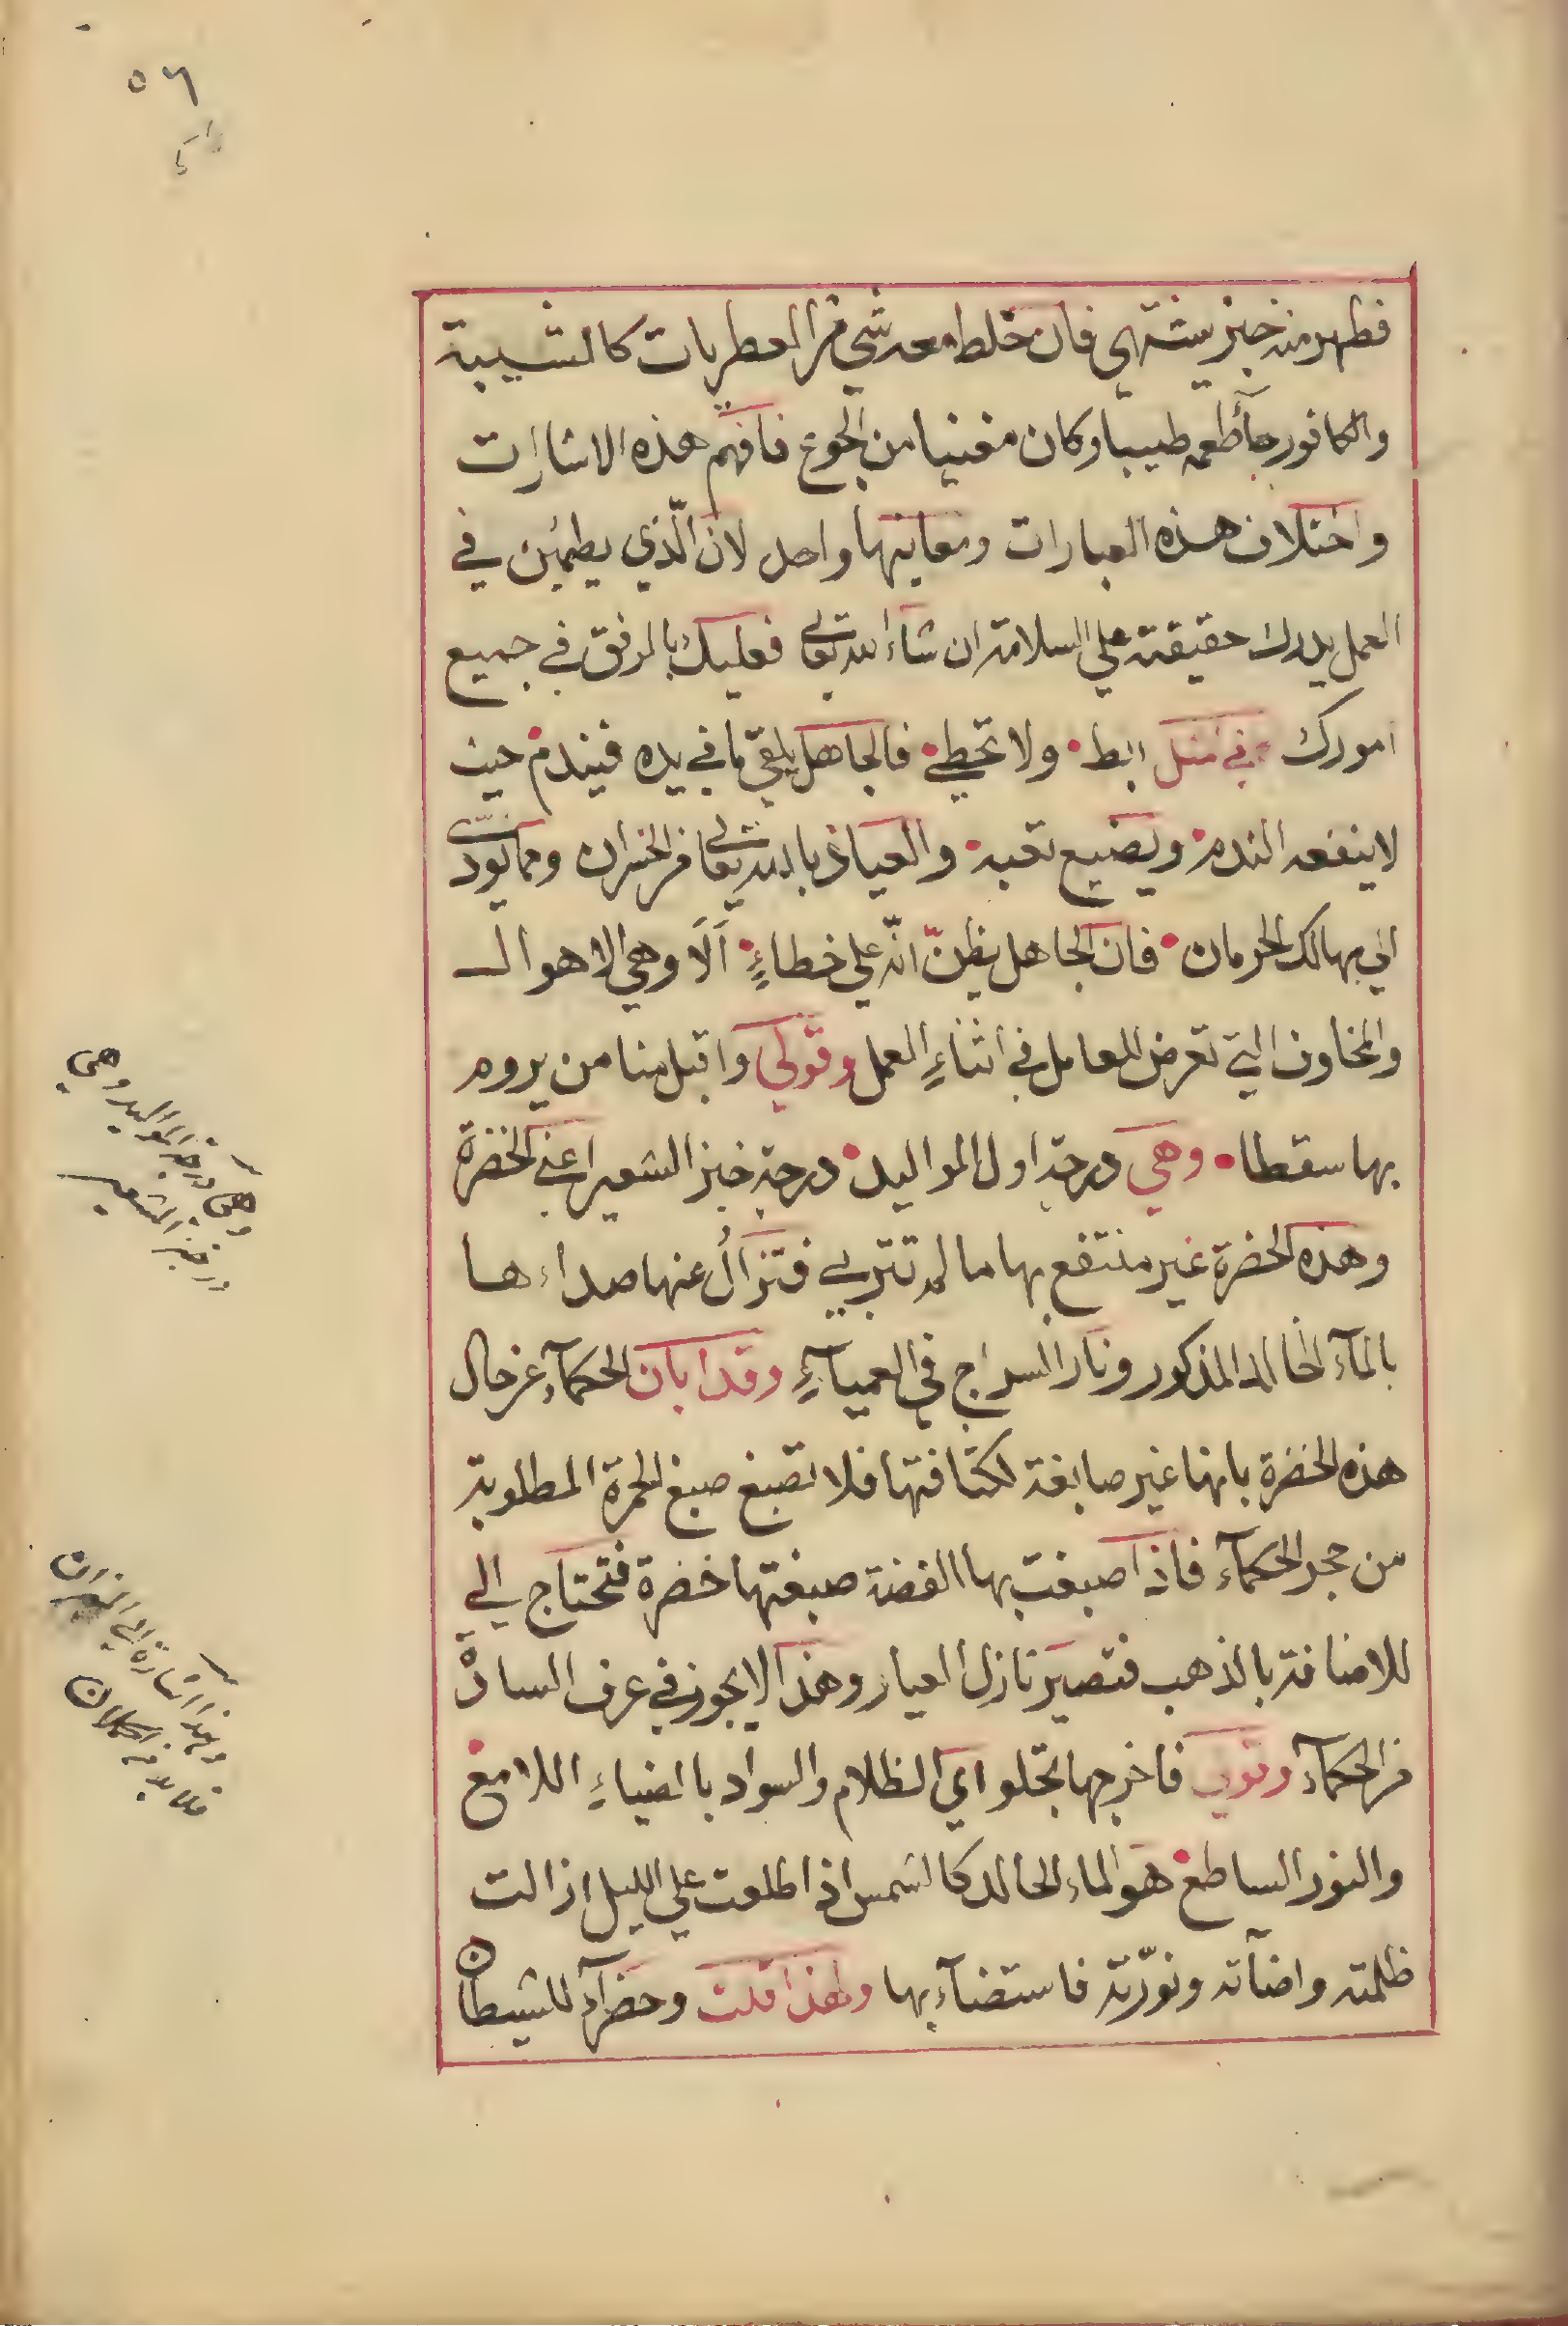 ٥٦
فظهر منه خبز يشتهي فان خلط معه شي من العطريات كالشيبة
والكافور جآء طعمه طيبا وكان مغنيا من الجوع فافهم هذه الاشارات
واختلاف هذه العبارات ومعاينها واحد لانّ الّذي يطمئن في
العمل يدرك حقيقته علي السلامة ان شاء الله تعالي فعليك بالرفق في جميع
امورك في مثل ابط ولا تخطي فالجاهل يلقي ما في يده فيندم حيث
لا ينفعه الندم ويضيع تعبه والعياذ بالله تعالي من الخسران ومما يودي
الي مهالك الحرمان فان الجاهل يظنّ انّه علي خطاءٍ آلَا وهي الاهوال
والمخاوف التي تعرض للعامل في اثناءِ العمل وقولي واقبل منا من يروم
بها سقطا وهي درجة اول المواليد درجة خبز الشعير اعني الخضرة
وهذه الخضرة غير منتفع بها ما لم تتربي فتزالُ عنها صداءها
بالمآء الخالد المذكور ونار السراج في العميآءِ وقد ابان الحكمآء عن حال
هذه الخضرة بانها غير صابغة لكثافتها فلا تصبغ صبغ الحمرة المطلوبة
من حجر الحكمآء فاذا صبغت بها الفضة صبغتها خضرة فتحتاج الي
للاضافة بالذهب فتصير نازل العيار وهذا لا يجوز في عرف السادة
من الحكمآء وقولي فاخرجها تجلو اي الظلام والسواد بالضياءِ اللامع
والنور الساطع هو الماء الخالد كالشمس اذا طلعت علي الليل ازالت
ظلمته واضآته ونوّرته فاستضآء بها ولهذا قلت وحضرآء للشيطان
وهي درجة المواليد وهي
درجة خبز الشعير